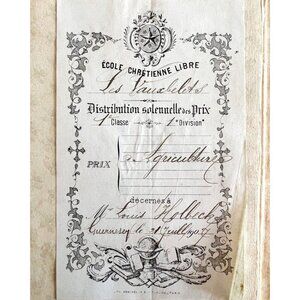 ÉCOLE CHRÉTIENNE LIBRE
Les Vauxbelets
Distribution solennelle des Prix
1re Classe 1e Division
PRIX d'Agriculture
décernés à
Mr Louis Holbech
Guernesey le 31 Juillet